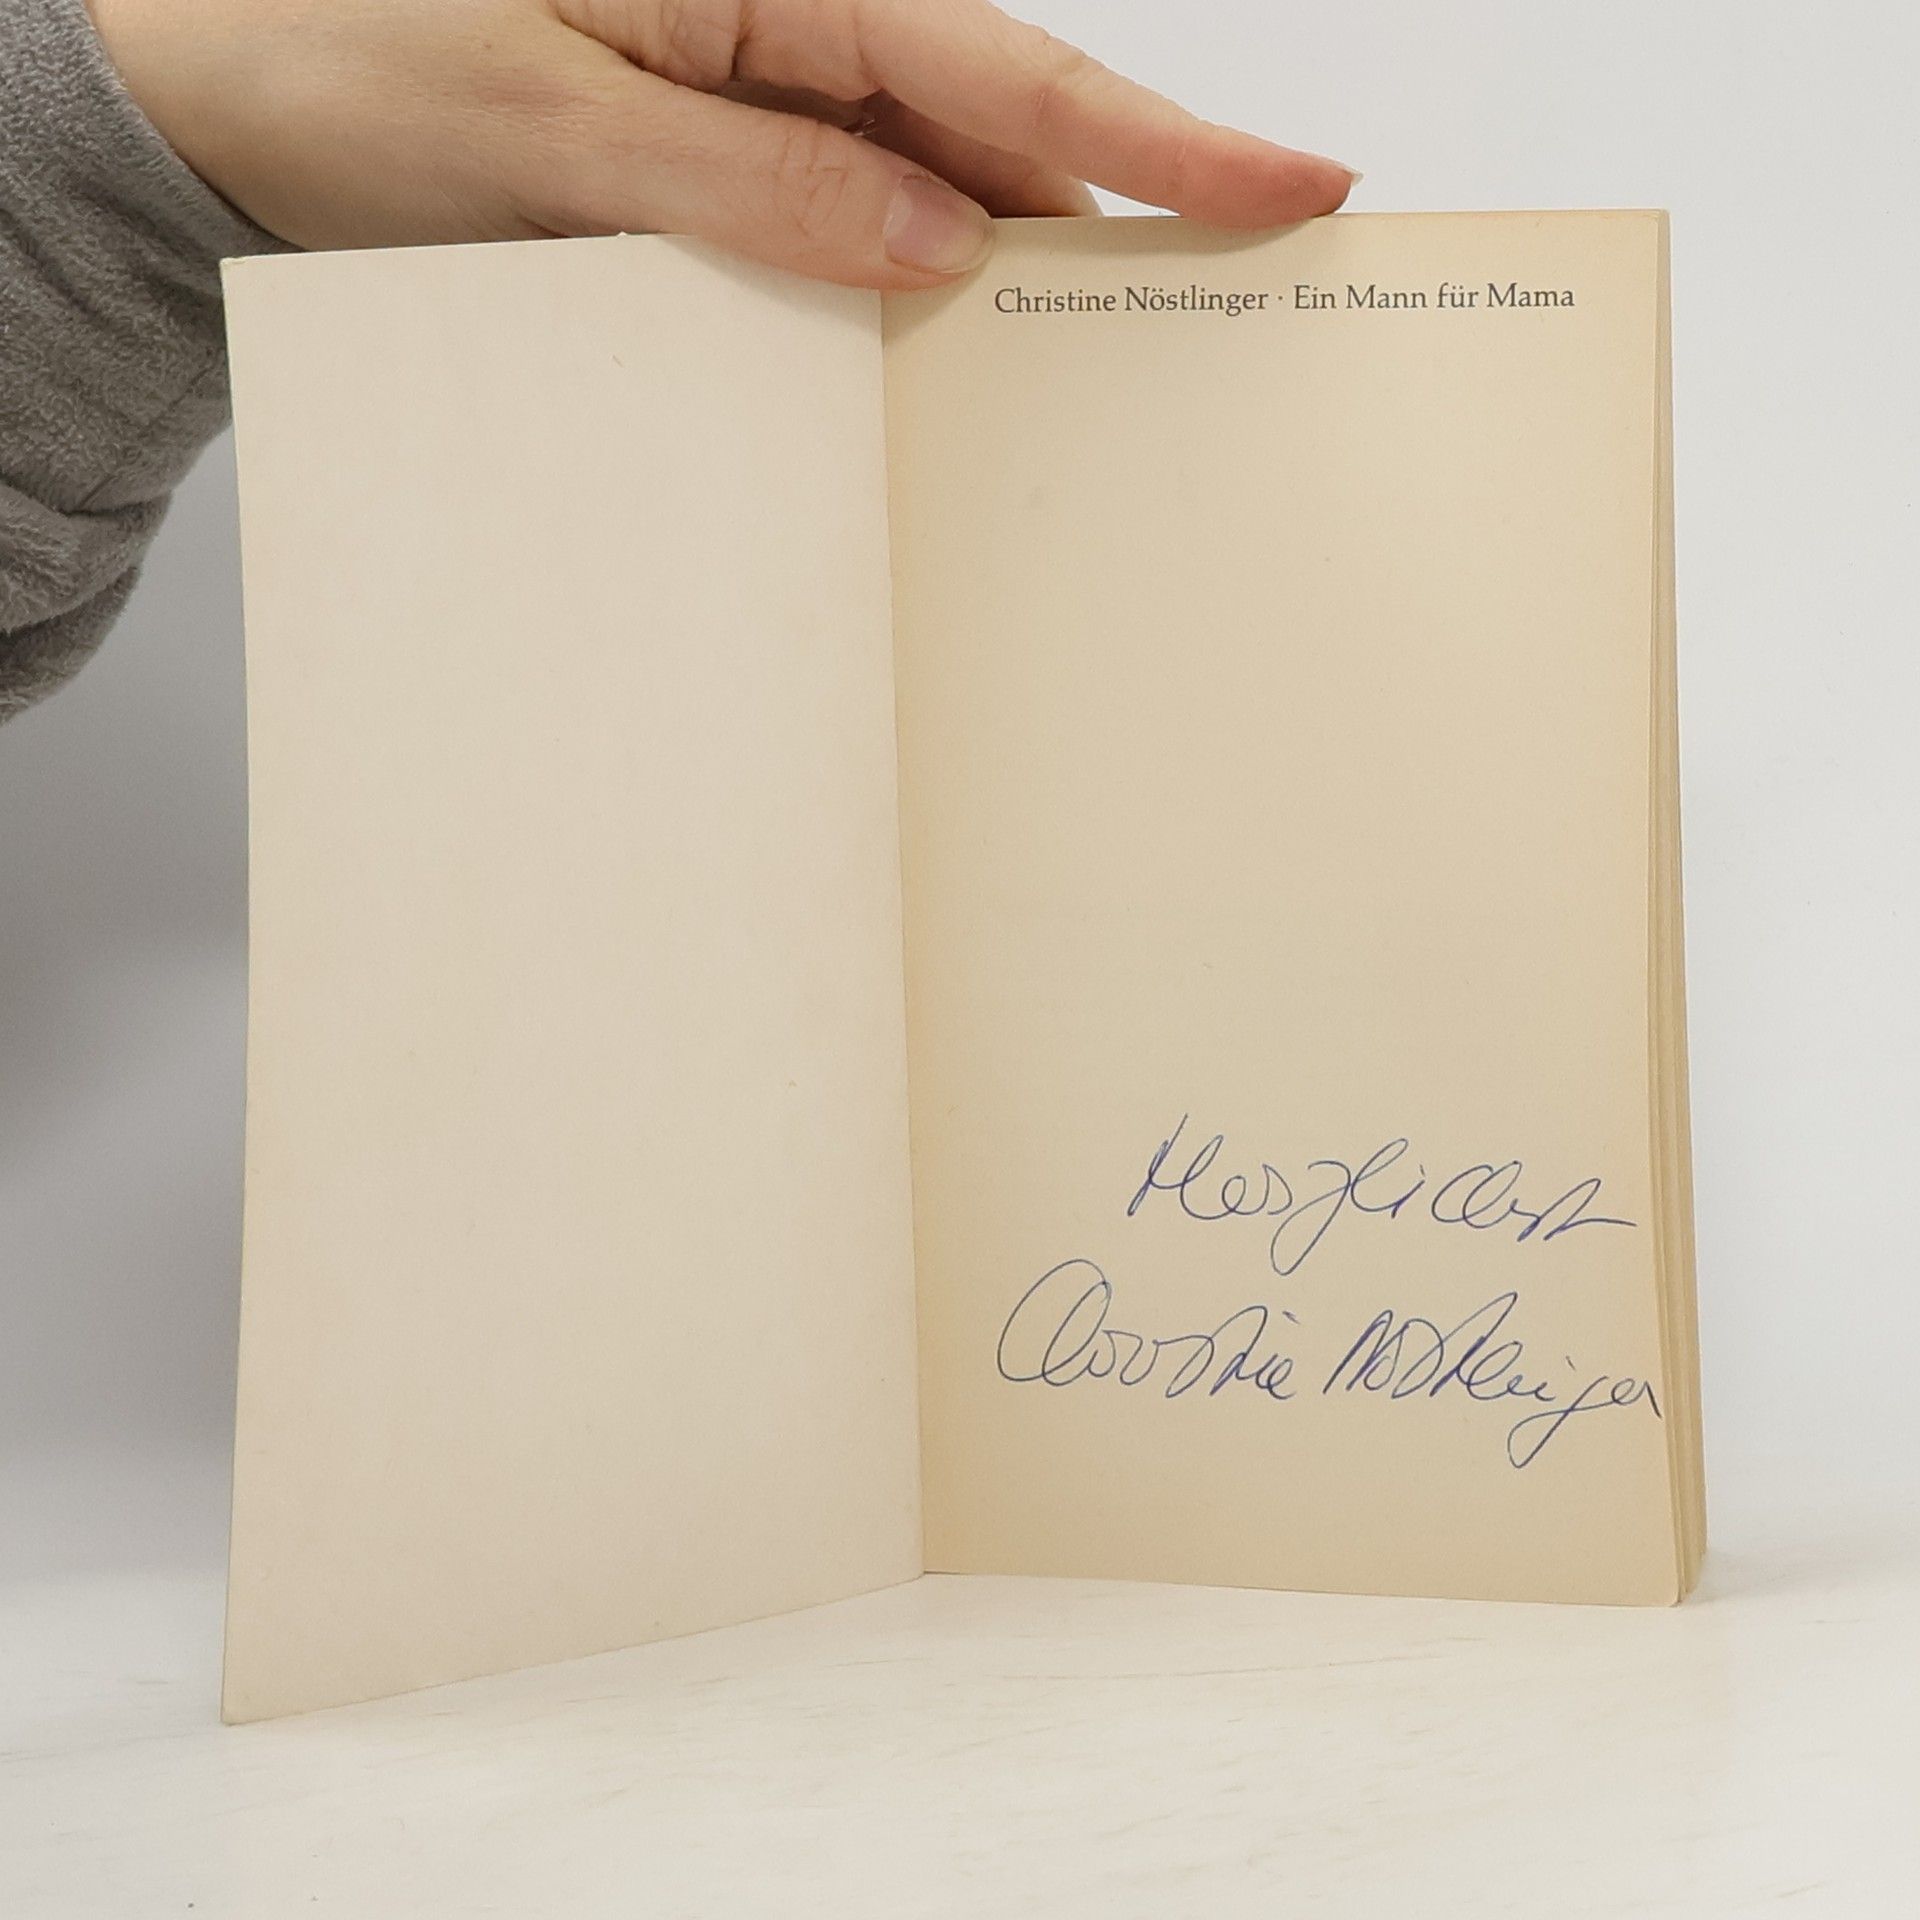 Christine Nöstlinger · Ein Mann für Mama
Herzlichst
Christine Nöstlinger